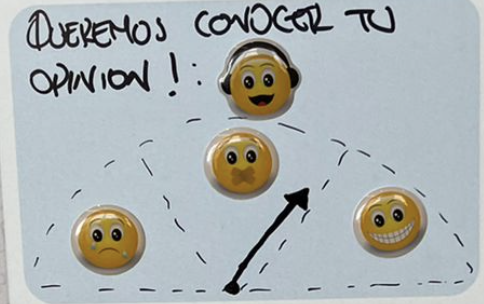 QUEREMOS CONOCER TU
OPINION ! :